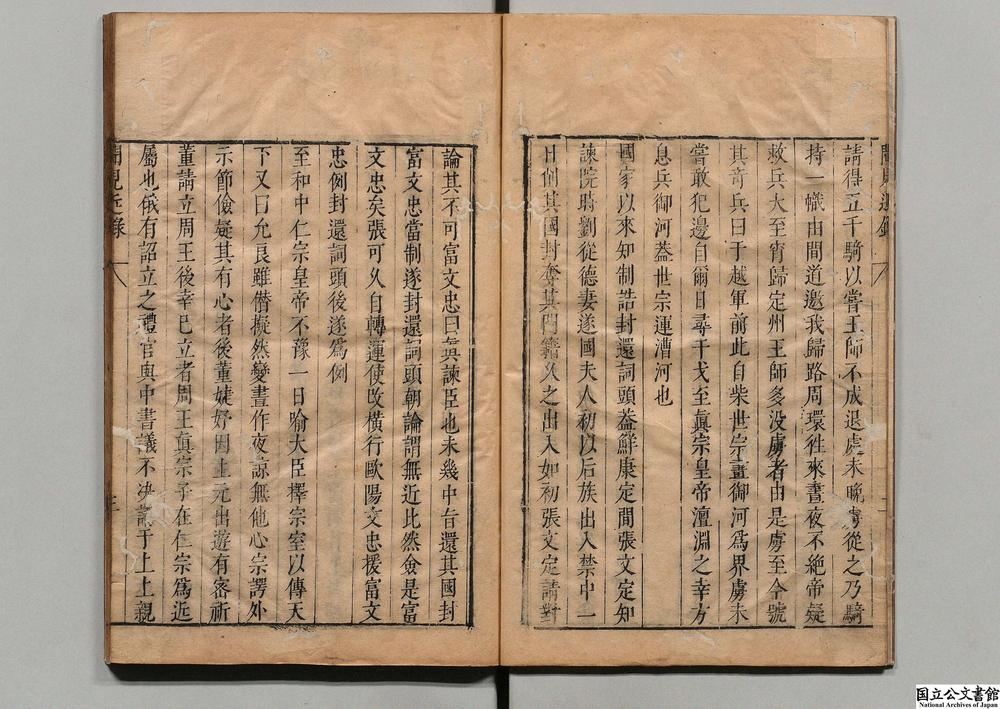 聞見近錄
請得五千騎以嘗王師不成退處未晚虜從之乃騎
持一幟由間道邀我歸路周環徃來晝夜不絶帝疑
救兵大至宵歸定州王師多没虜者由是虜至今號
其奇兵曰于越軍前此自柴世宗畫御河爲界虜未
嘗敢犯邊自爾日尋干戈至眞宗皇帝澶淵之幸方
息兵御河葢世宗運漕河也
國家以來知制誥封還詞頭葢鮮康定間張文定知
諫院時劉從德妻遂國夫人初以后族出入禁中一
日削其國封奪其門籍久之出入如初張文定請對
論其不可富文忠曰眞諫臣也未幾中旨還其國封
富文忠當制遂封還詞頭朝論謂無近比然僉是富
文忠矣張可久自轉運使改橫行歐陽文忠援富文
忠例封還詞頭後遂爲例
至和中仁宗皇帝不豫一日喻大臣擇宗室以傳天
下又曰允良雖僣擬然變晝作夜諒無他心宗諤外
示節儉疑其有心者後董婕妤因上元出遊有密祈
董請立周王後幸巳立者周王眞宗子在仁宗爲近
屬也俄有詔立之禮官與中書議不决請于上上親
聞見近錄
國立公文書館
National Archives of Japan